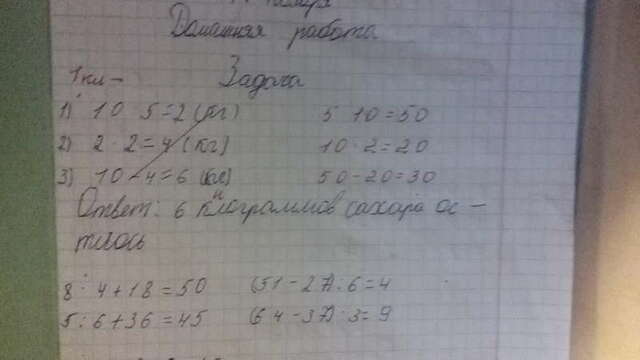 Домашняя работа
Задача
1 кл -
1) 10 5 = 2 (кг) 5 10 = 50
2) 2 · 2 = 4 (кг) 10 · 2 = 20
3) 10 - 4 = 6 (кг) 50 - 20 = 30
Ответ: 6 килограммов сахара ос -
талось
8 : 4 + 18 = 50 (51 - 27) : 6 = 4
5 : 6 + 36 = 45 (64 - 37) : 3 = 9